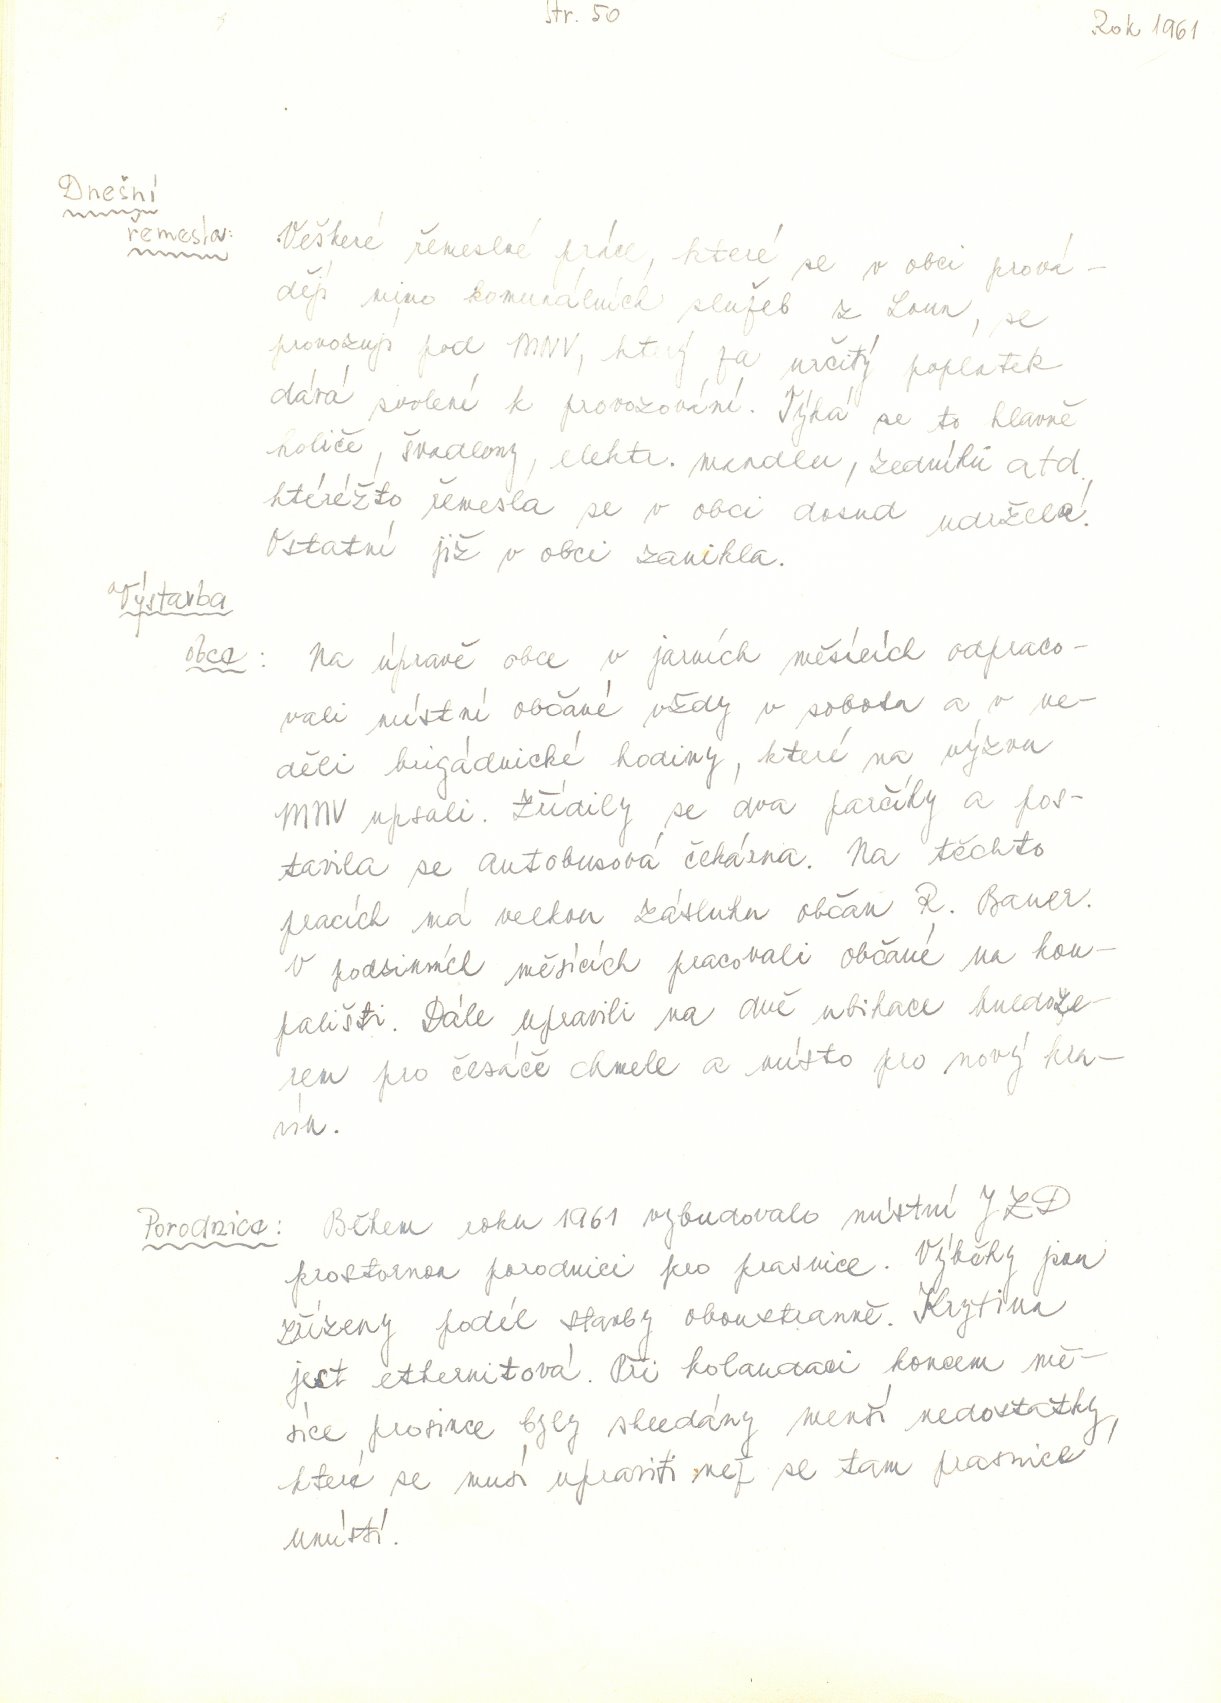 Str. 50
Rok 1961
Dnešní
řemesla:
Veškeré řemeslné práce, které se v obci prová-
dějí mimo komunálních služeb z Loun, se
provozují pod MNV, který za určitý poplatek
dává svolení k provozování. Týká se to hlavně
holiče, švadleny, elektr. mandlu, zedníků atd.,
kteréžto řemesla se v obci dosud udržela.
Ostatní již v obci zanikla.
Výstavba
obce: Na úpravě obce v jarních měsících odpraco-
vali místní občané vždy v sobotu a v ne-
děli brigádnické hodiny, které na výzvu
MNV upsali. Zřídily se dva parčíky a pos-
tavila se autobusová čekárna. Na těchto
pracích má velkou zásluhu občan R. Bauer.
V podzimních měsících pracovali občané na kou-
pališti. Dále upravili na dvě ubikace buldoze-
rem pro česáče chmele a místo pro nový kra-
vín.
Porodnice: Během roku 1961 vybudovalo místní JZD
prostornou porodnici pro prasnice. Výběhy jsou
zřízeny podél stavby oboustranně. Krytina
jest ethernitová. Při kolaudaci koncem mě-
síce prosince byly shledány menší nedostatky,
které se musí upraviti než se tam prasnice
umístí.